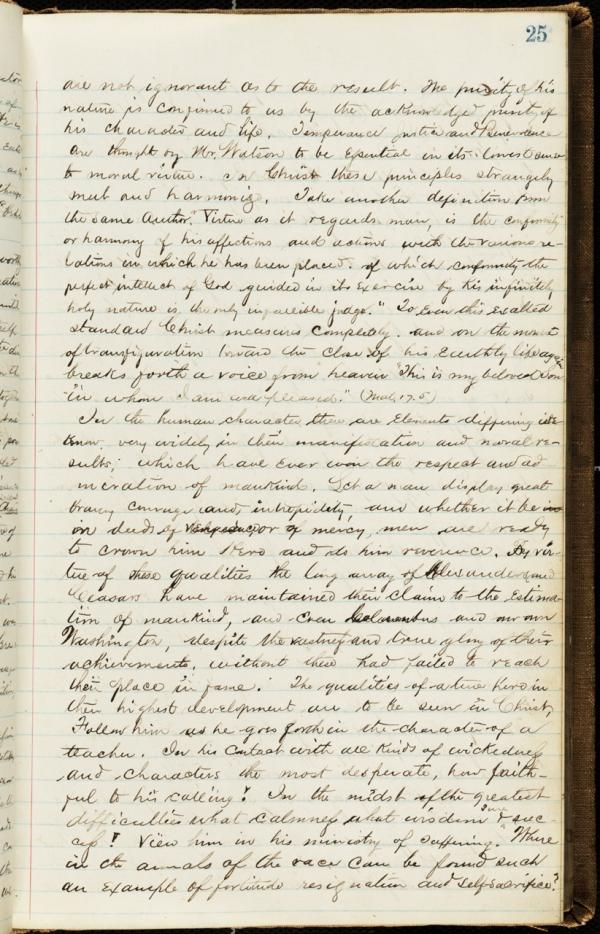 25
are not ignorant as to the result. The purity of his
nature is confirmed to us by the acknowledged purity of
his character and life. Temperance justice and Benevolence
are thought by Mr. Watson to be Essential in its lowest sense
to moral virtue. In Christ these principles strangely
meet and harmonize. Take another definition from
the same author. "Virtue as it regards man, is the conformity
or harmony of his affections and actions with the various re-
lations in which he has been placed. of which conformity the
perfect intellect of God guided in its exercise by his infinitely
holy nature is the only infallible judge." To Even this exalted
standard Christ measures completely. and on the mount
of transfiguration toward the close of his Earthly life again
breaks forth a voice from heaven "This is my beloved Son
in whom I am well pleased." (Mat, 17.5)
In the human character there are Elements differing we
know very widely in their manifestation and moral re-
sults; which have Ever won the respect and ad-
miration of mankind. Let a man display great
bravery courage and intrepidity, and whether it be
on deeds of or of mercy, men are ready
to crown him Hero and do him reverence. By vir-
tue of these qualities the long array of Alexanders and
Ceasars have maintained their claim to the Estima-
tion of mankind, and Even Columbus and our own
Washington, despite the vastness and true glory of their
achievements, without them had failed to reach
their place in fame. The qualities of a true hero in
their highest development are to be seen in Christ,
Follow him as he goes forth in the character of a
teacher. In his contact with all kinds of wickedness
and characters the most desperate, how faith-
ful to his calling! In the midst of the greatest
difficulties what calmness what wisdom & suc-
cess! View him in his ministry of suffering. "Where
in the annals of the race can be found such
an Example of fortitude resignation and self-sacrifice?